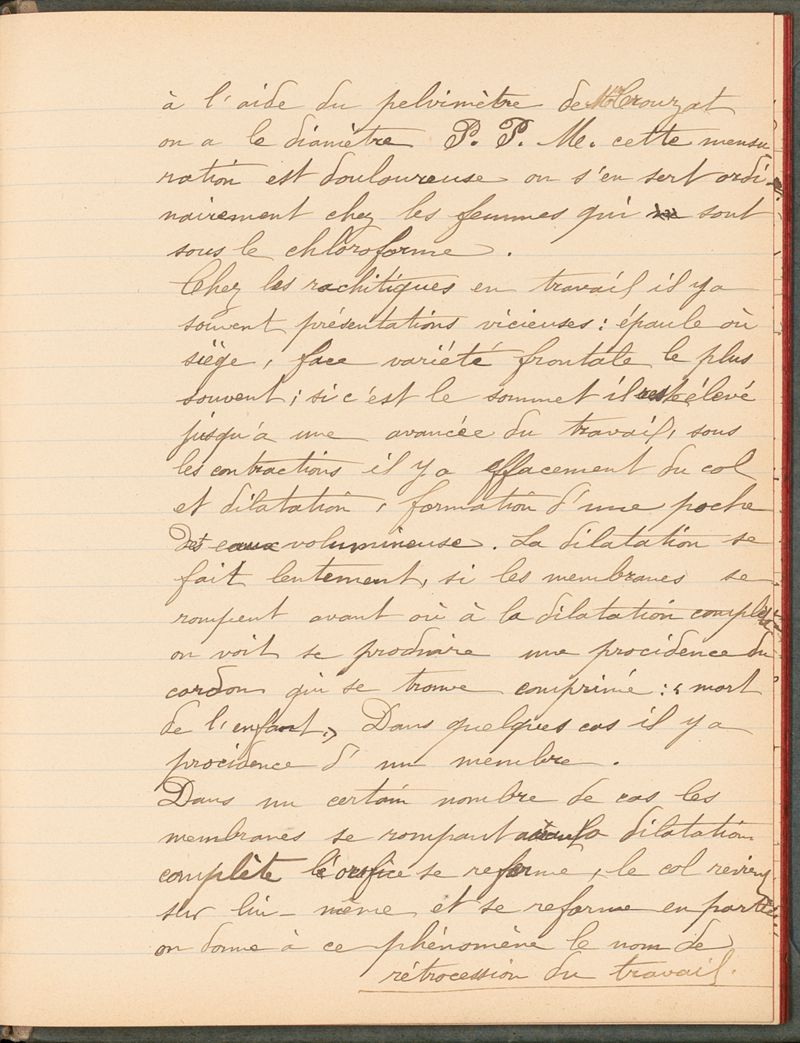 à l'aide du pelvimètre de Mr Crouzat
on a le diamètre P. P. M. cette mensu
ration est douloureuse on s'en sert ordi-
nairement chez les femmes qui sont
sous le chloroforme.
Chez les rachitiques en travail il y a
souvent présentations vicieuses : épaule où
siège, face variété frontale le plus
souvent ; si c'est le sommet il reste élevé
jusqu'à une avancée du travail, sous
les contractions il y a effacement du col
et dilatation, formation d'une poche
des eaux volumineuse. La dilatation se
fait lentement, si les membranes se
rompent avant où à la dilatation complète
on voit se produire une procidence du
cordon qui se trouve comprimé : mort
de l'enfant, Dans quelques cas il y a
procidence d'un membre.
Dans un certain nombre de cas les
membranes se rompant dilatation
complète l'orifice se referme, le col revient
sur lui-même et se reforme en partie
on donne à ce phénomène le nom de
rétrocession du travail.